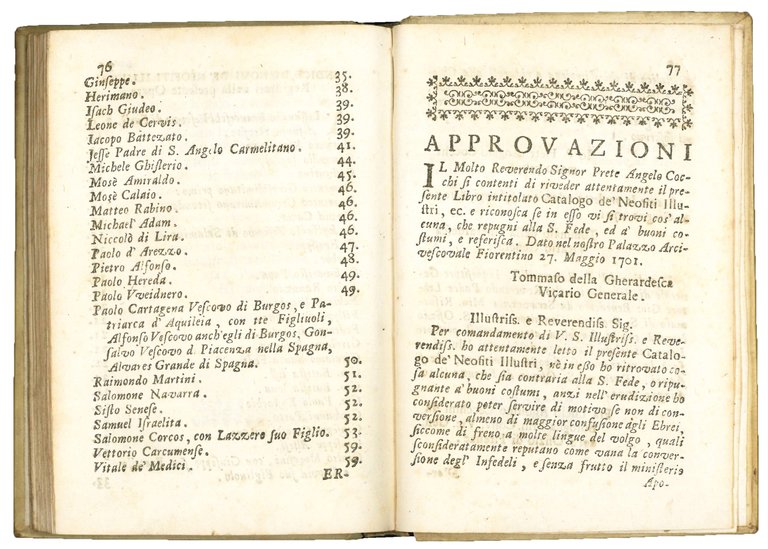 76
Giuseppe. 35.
Herimano. 38.
Isach Giudeo. 39.
Leone de Cervis. 39.
Iacopo Battezato. 39.
Jesse Padre di S. Angelo Carmelitano. 41.
Michele Ghislerio. 44.
Mosè Amiraldo. 45.
Mosè Calaio. 46.
Matteo Rabino. 46.
Michael Adam. 46.
Niccolò di Lira. 46.
Paolo d'Arezzo. 47.
Pietro Alfonso. 48.
Paolo Hereda. 49.
Paolo Vveidnero. 49.
Paolo Cartagena Vescovo di Burgos, e Pa-
triarca d'Aquileia, con tte Figliuoli,
Alfonso Vescovo anch'egli di Burgos, Gon-
salvo Vescovo d. Piacenza nella Spagna,
Alvares Grande di Spagna. 50.
Raimondo Martini. 51.
Salomone Navarra. 52.
Sisto Senese. 52.
Samuel Israelita. 52.
Salomone Corcos, con Lazzero suo Figlio. 53.
Vettorio Carcumense. 59.
Vitale de' Medici. 59.
ER-
77
APPROVAZIONI
IL Molto Reverendo Signor Prete Angelo Coc-
chi si contenti di riveder attentamente il pre-
sente Libro intitolato Catalogo de' Neofiti Illu-
stri, ec. e riconosca se in esso vi si trovi cos' al-
cuna, che repugni alla S. Fede, ed a' buoni co-
stumi, e referisca. Dato nel nostro Palazzo Arci-
vescovale Fiorentino 27. Maggio 1701.
Tommaso della Gherardesca
Vicario Generale.
Illustriss. e Reverendiss. Sig.
Per comandamento di V. S. Illustriss. e Reve-
rendiss. ho attentamente letto il presente Catalo-
go de' Neofiti Illustri, nè in esso ho ritrovato co-
sa alcuna, che sia contraria alla S. Fede, o ripu-
gnante a' buoni costumi, anzi nell'erudizione ho
considerato poter servire di motivo se non di con-
versione, almeno di maggior confusione agli Ebrei,
siccome di freno a molte lingue del volgo, quali
sconsideratamente reputano come vana la conver-
sione degl' Infedeli, e senza frutto il ministerio
Apo-